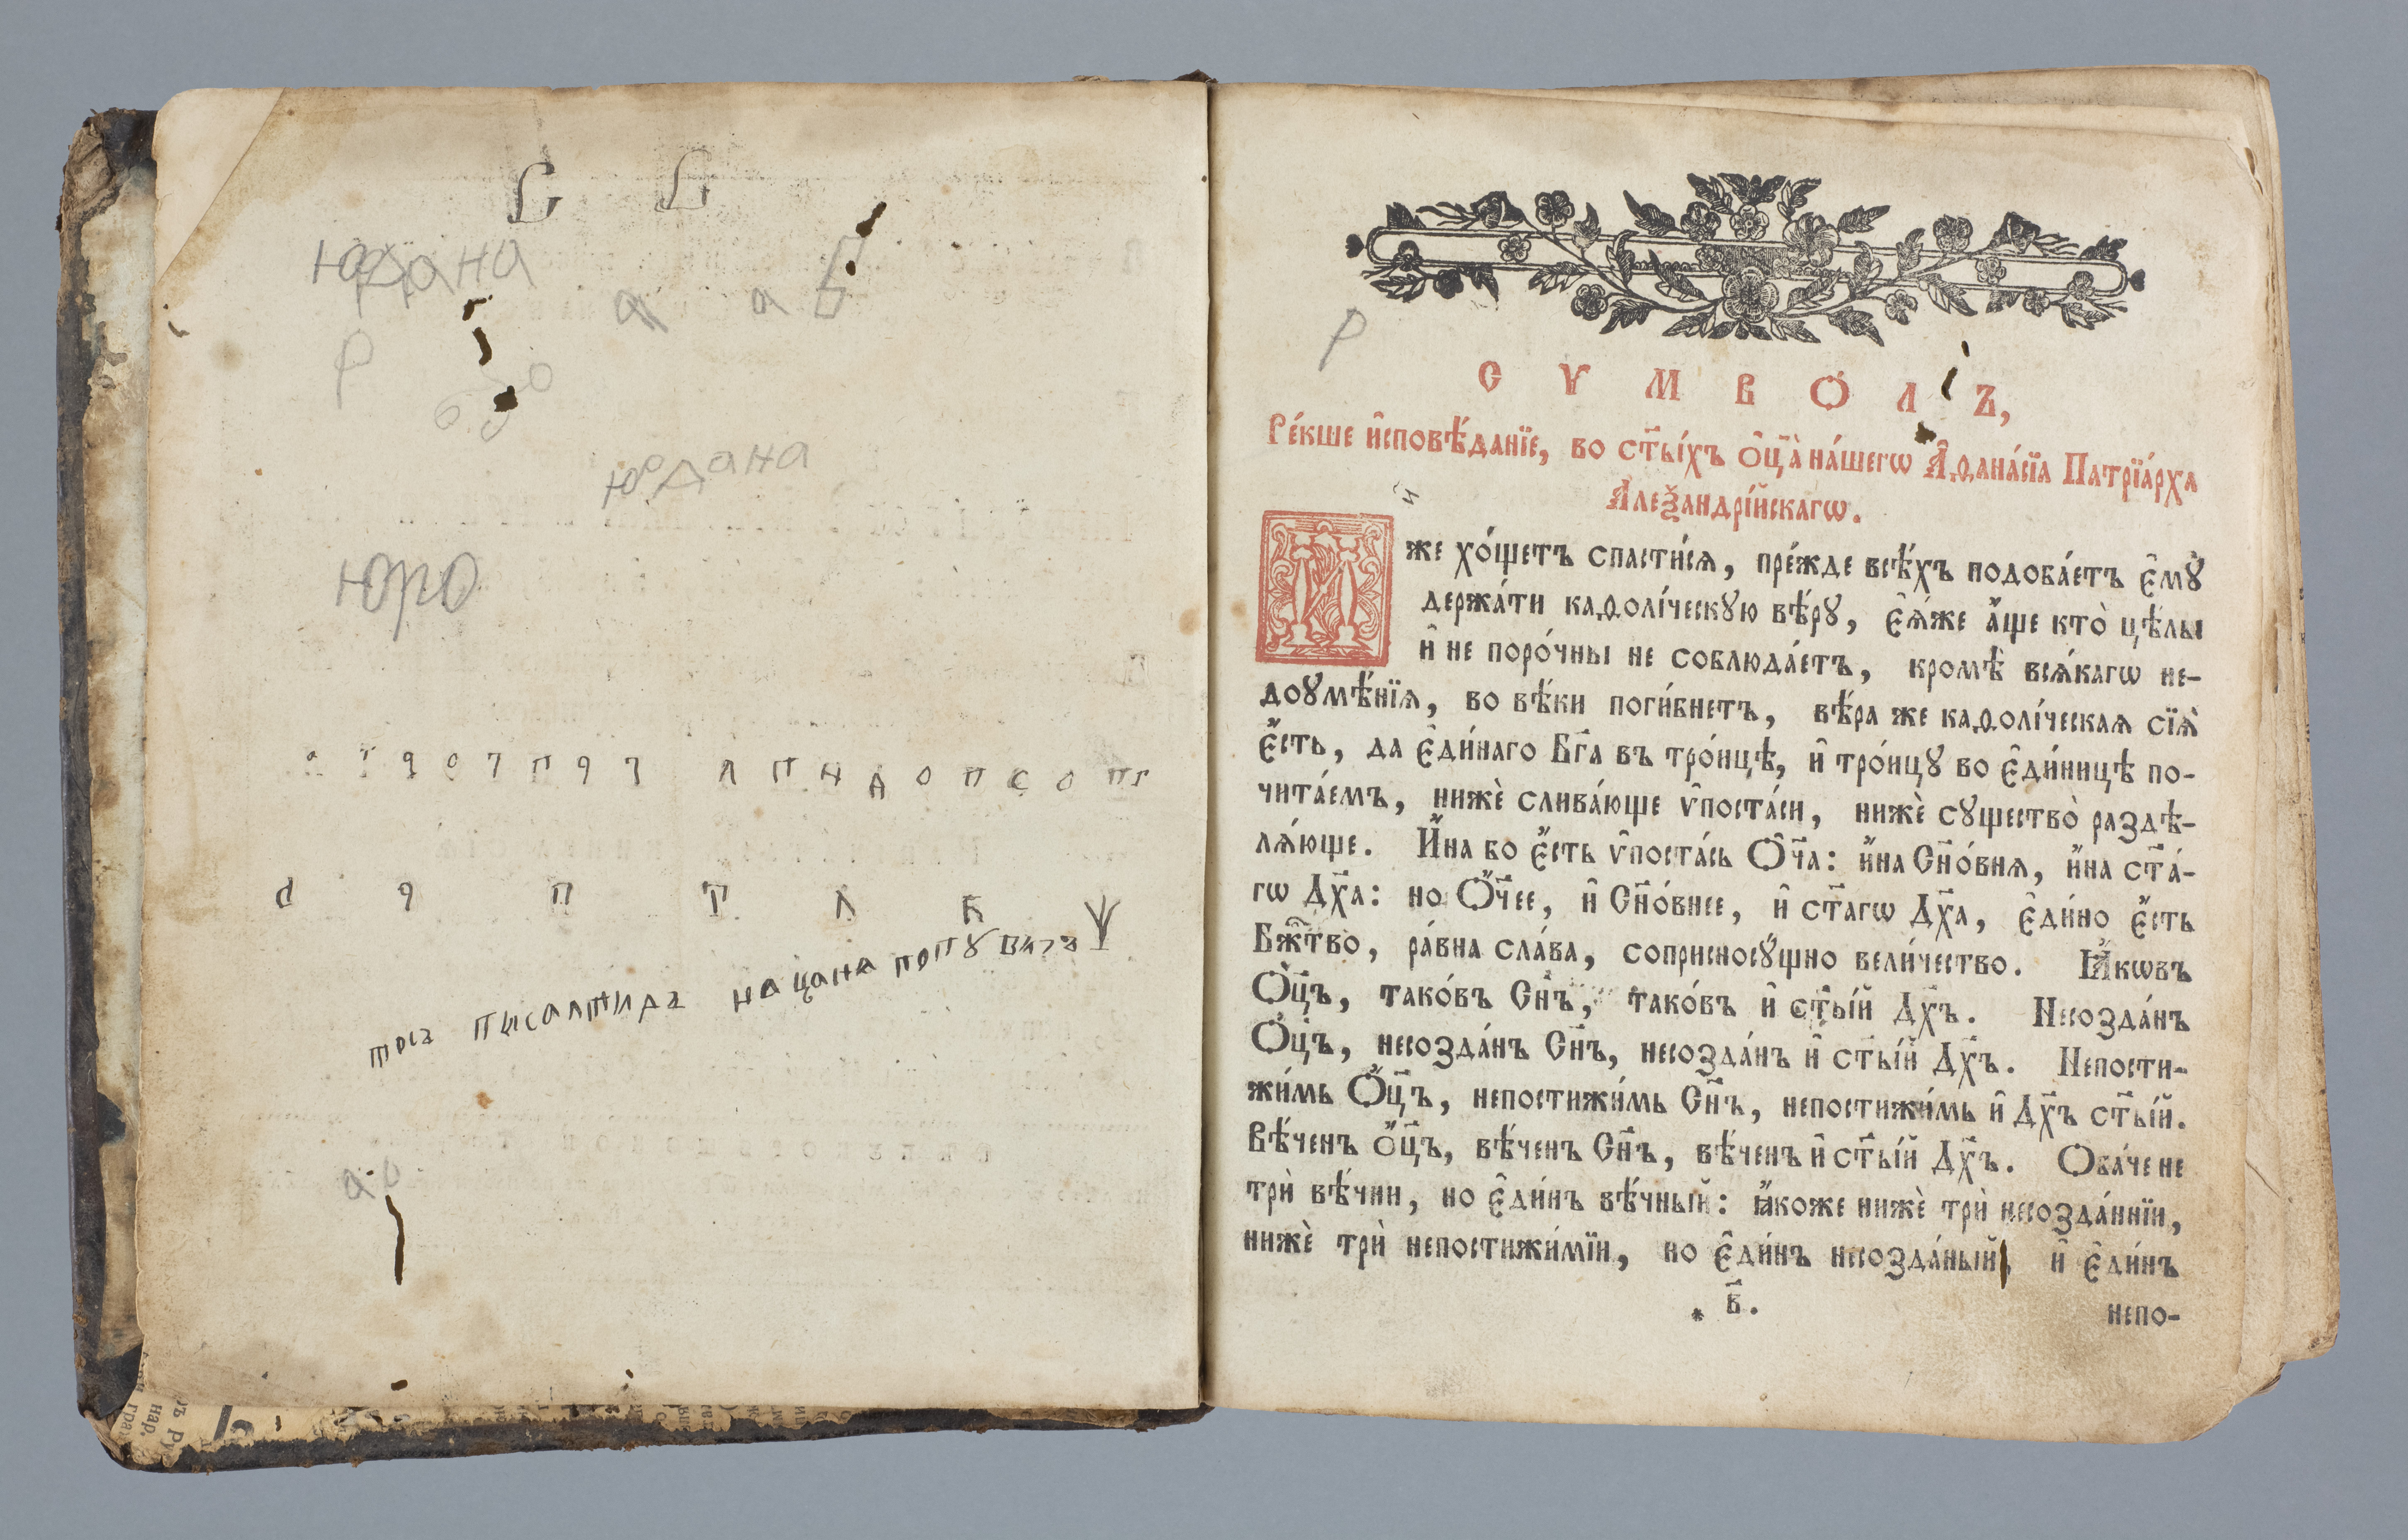 юрдана
а а б
р
юрдана
юро
о т 9 о ч п 9 ч л п н а о п с о п г
р 9 п т л к ѱ
тоѧ пысалтира на цана попꙋ виза
а о
р
СѴМВО́ЛЪ,
Ре́кше и҆сповѣ́данїе, во ст҃ы́хъ ѻ҆ц҃а̀ на́шегѡ А҆ѳана́сїа Патрїа́рха
А҆леѯандрі́йскагѡ.
И
же хо́щетъ спасти́сѧ, пре́жде всѣ́хъ подоба́етъ є҆мꙋ̀
держа́ти каѳолі́ческꙋю вѣ́рꙋ, є҆ѧ́же а҆́ще кто̀ цѣ́лы
и҆ не поро́чны не соблюда́етъ, кромѣ̀ всѧ́кагѡ не-
доꙋмѣ́нїѧ, во вѣ́ки поги́бнетъ, вѣ́ра же каѳолі́ческаѧ сїѧ̀
є҆́сть, да є҆ди́наго Бг҃а въ тро́ицѣ, и҆ тро́ицꙋ во є҆ди́ницѣ по-
чита́емъ, нижѐ слива́юще ѵ҆поста́си, нижѐ сꙋщество̀ раздѣ-
лѧ́юще. И҆́на бо є҆́сть ѵ҆поста́сь Ѻ҆ч҃а: и҆́на Сн҃о́внѧ, и҆́на ст҃а́-
гѡ Дх҃а: но Ѻ҆́ч҃ее, и҆ Сн҃о́внее, и҆ ст҃агѡ Дх҃а, є҆ди́но є҆́сть
Бж҃тво̀, ра́вна сла́ва, соприсносꙋ́щно вели́чество. Ꙗ҆́ковъ
Ѻ҆ц҃ъ, тако́въ Сн҃ъ, тако́въ и҆ ст҃ы́й Дх҃ъ. Несозда́нъ
Ѻ҆ц҃ъ, несозда́нъ Сн҃ъ, несозда́нъ и҆ ст҃ы́й Дх҃ъ. Непости-
жи́мь Ѻ҆ц҃ъ, непостижи́мь Сн҃ъ, непостижи́мь и҆ Дх҃ъ ст҃ы́й.
Вѣ́ченъ ѻ҆ц҃ъ, вѣ́ченъ Сн҃ъ, вѣ́ченъ и҆ ст҃ы́й Дх҃ъ. Ѻба́че не
трѝ вѣ́чни, но є҆ди́нъ вѣ́чный: ꙗ҆́коже нижѐ трѝ несозда́ннїи,
нижѐ трѝ непостижи́мїи, но є҆ди́нъ несозда́ный, и҆ є҆ди́нъ
* в҃.
непо-